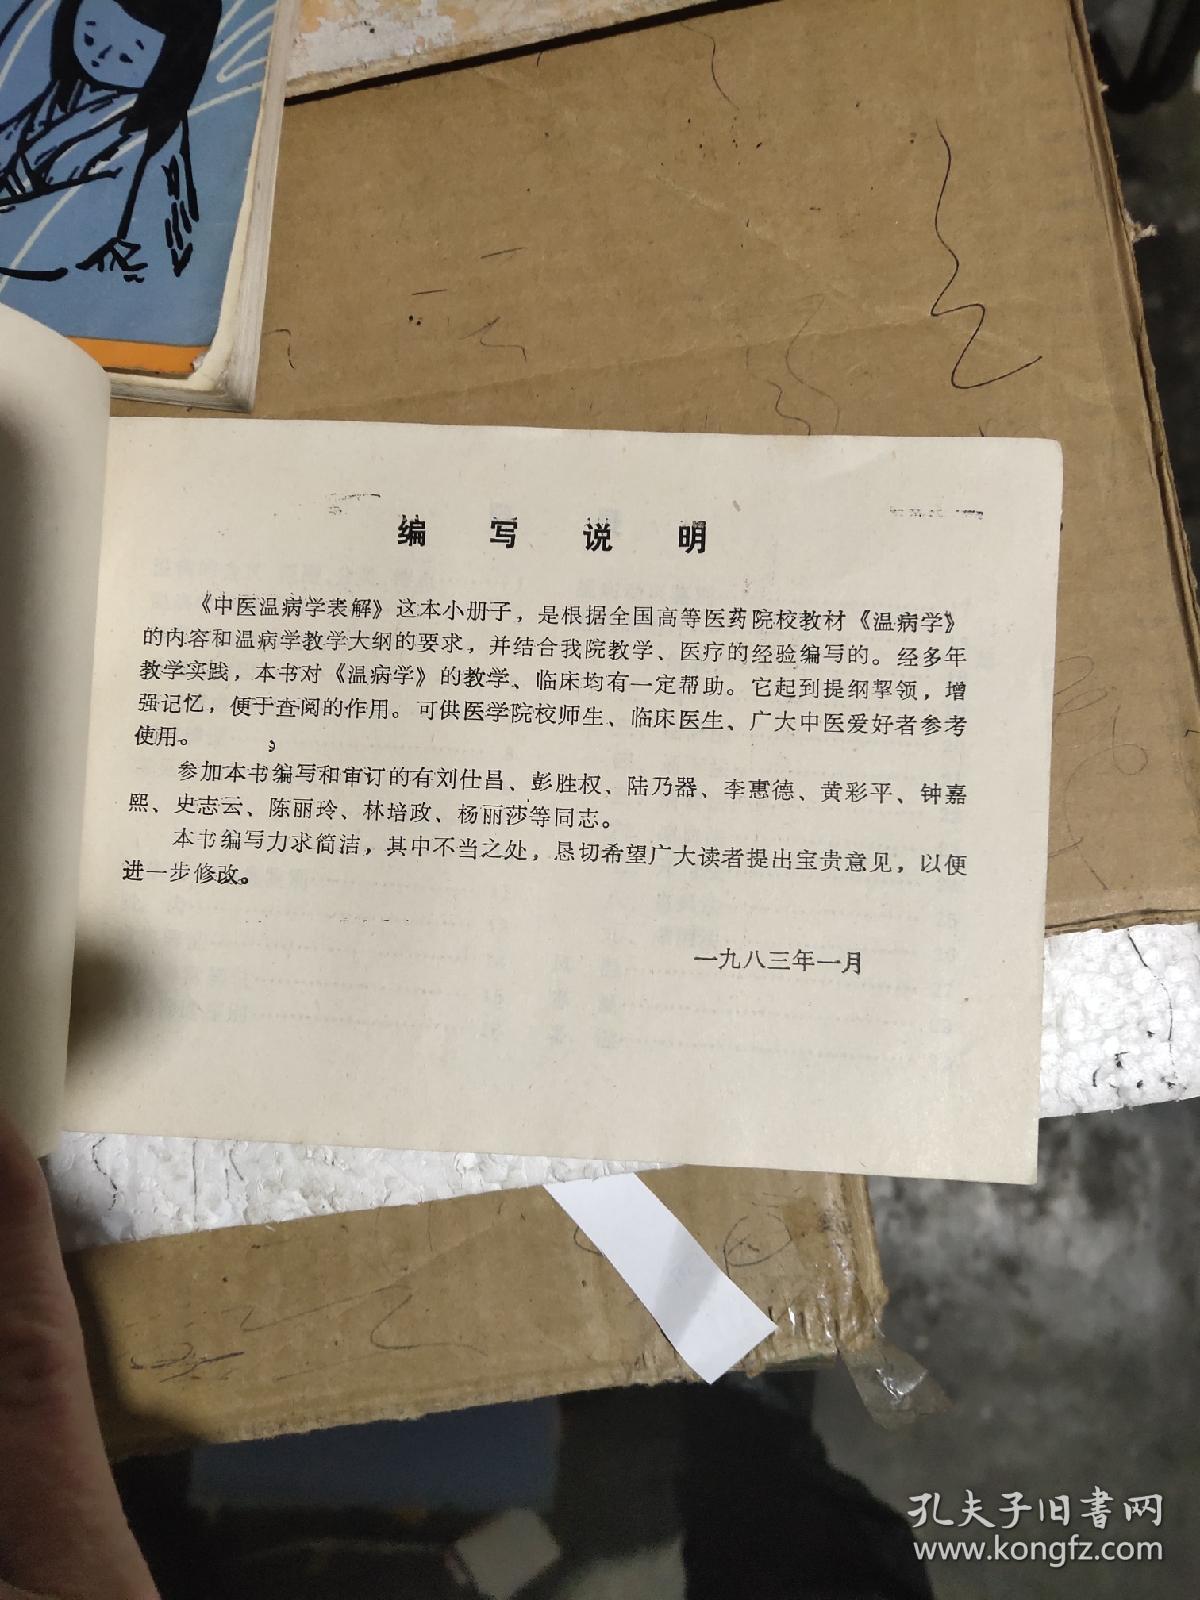 编写说明
《中医温病学表解》这本小册子，是根据全国高等医药院校教材《温病学》
的内容和温病学教学大纲的要求，并结合我院教学、医疗的经验编写的。经多年
教学实践，本书对《温病学》的教学、临床均有一定帮助。它起到提纲挈领，增
强记忆，便于查阅的作用。可供医学院校师生、临床医生、广大中医爱好者参考
使用。
参加本书编写和审订的有刘仕昌、彭胜权、陆乃器、李惠德、黄彩平、钟嘉
熙、史志云、陈丽玲、林培政、杨丽莎等同志。
本书编写力求简洁，其中不当之处，恳切希望广大读者提出宝贵意见，以便
进一步修改。
一九八三年一月
孔夫子旧书网
www.kongfz.com